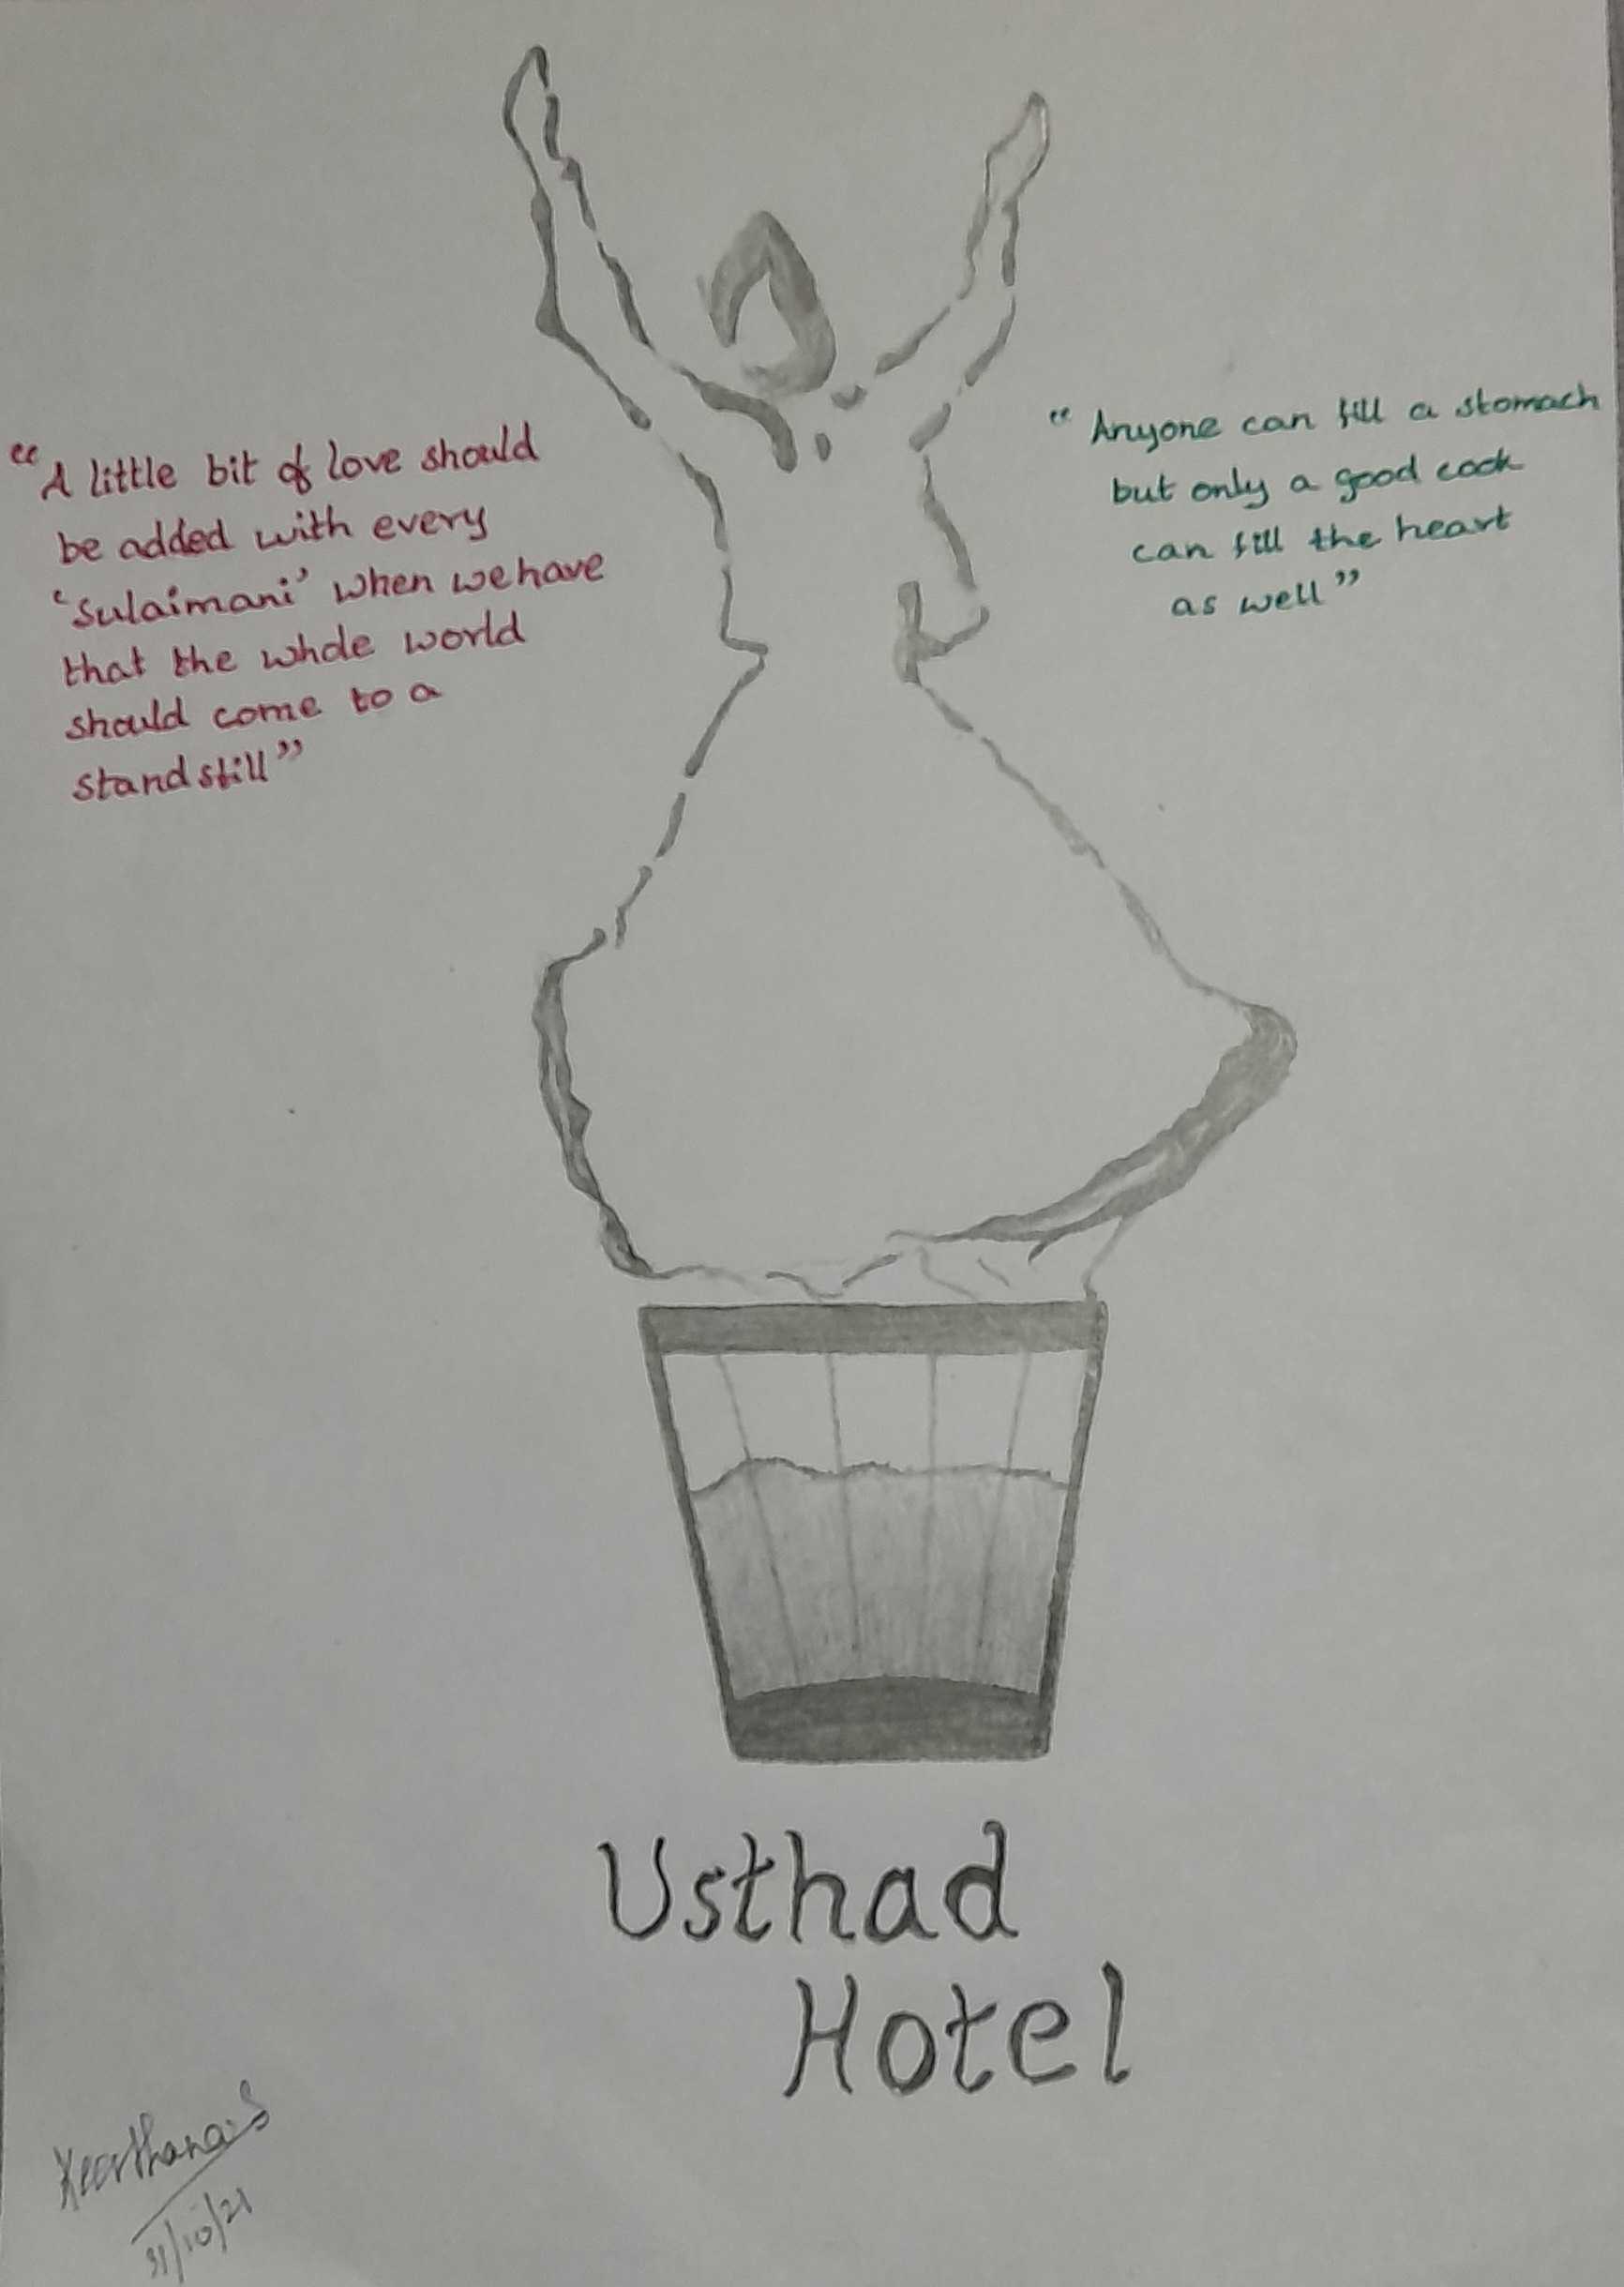 “A little bit of love should
be added with every
‘Sulaimani’ when we have
that the whole world
should come to a
stand still”
“Anyone can fill a stomach
but only a good cook
can fill the heart
as well”
Usthad
Hotel
Keerthana.S
31/10/21